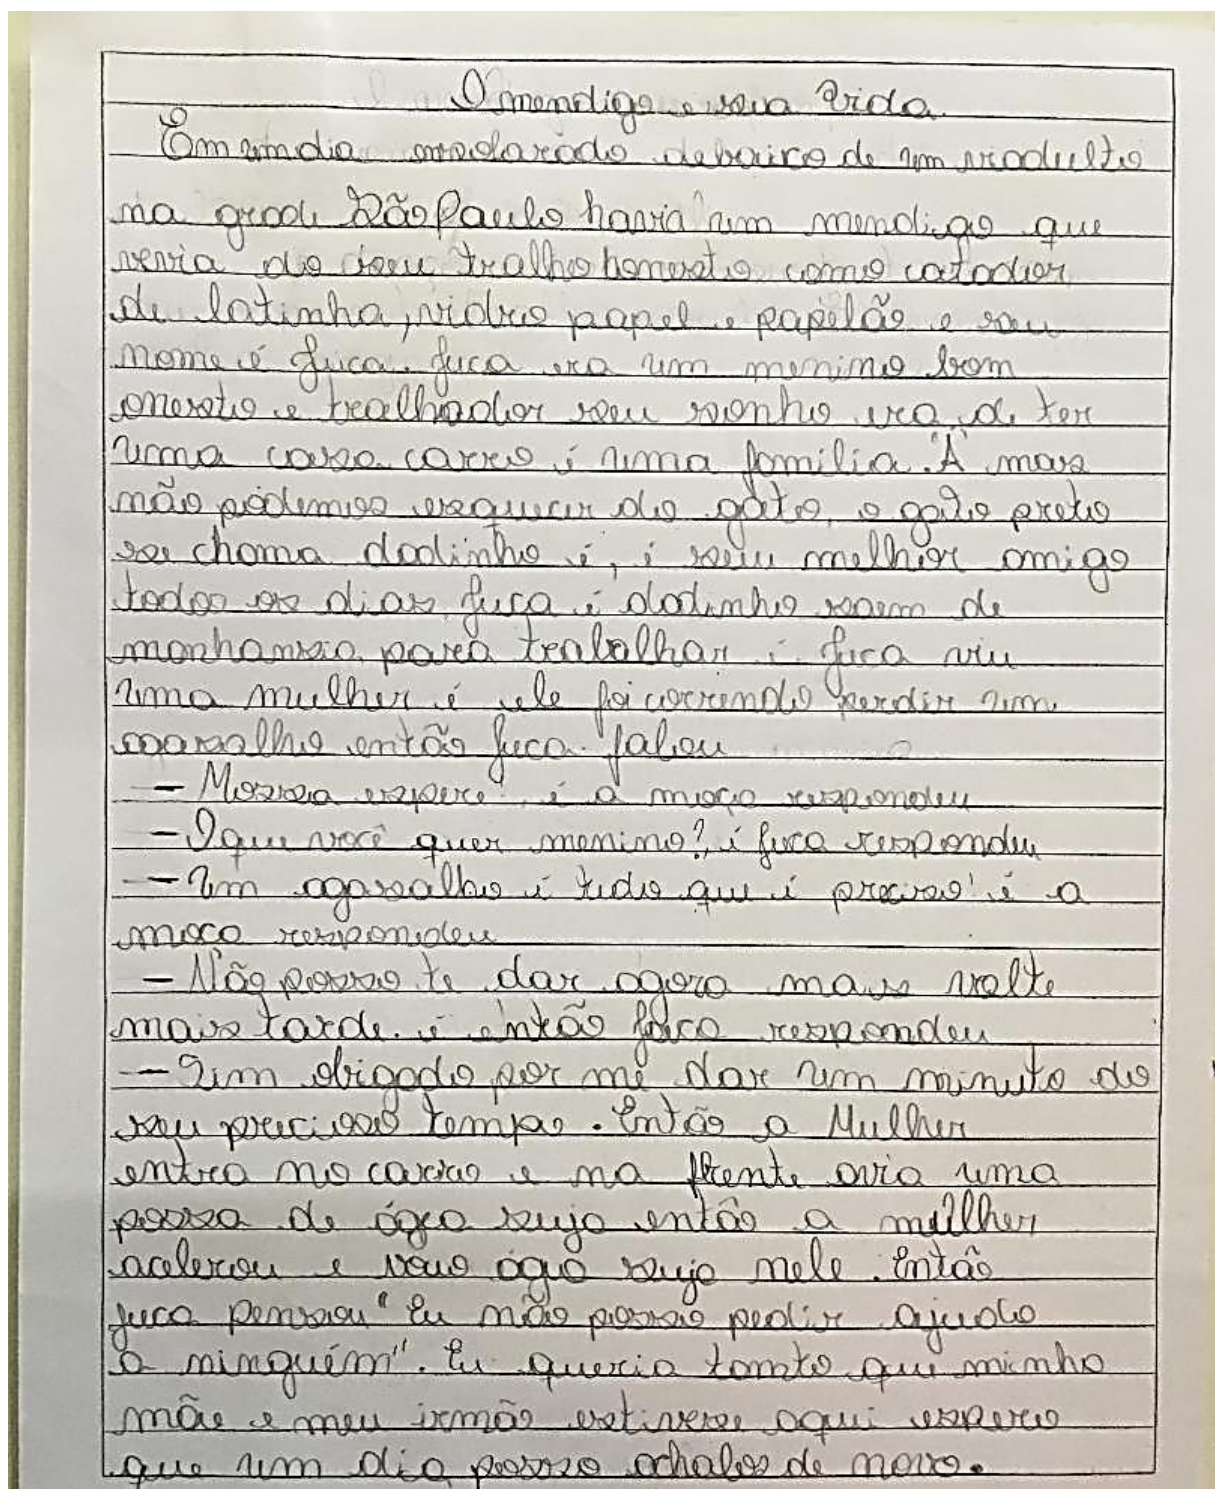 O mendigo e seua Vida.
Em um dia ensolarado debaixo de um viadulto
na grade São Paulo havia um mendigo que
venia do seu tralho honesto como catador
de latinha, vidro papel e papelão e seu
nome é Juca. Juca era um menino bom
onesto e tralhador seu sonho era de ter
uma casa carro é uma familia. "A" mas
não podemos esquecer do gato, o gato preto
se chama dadinho é, é seu melhor amigo
todos os dias Juca é dadinho saem de
manhansia para trabalhar é Juca viu
uma mulher é ele foi correndo perdir um
agasalho então Juca falou
— Mossa espere é a moça respondeu
— Oque você quer menino?, é Juca respondeu
— Um agasalho é tudo que é preciso! é a
moça respondeu
— Não posso te dar agora mais volte
mais tarde. é então Juca respondeu
— Um obigado por me dar um minuto do
seu precisoso tempo. Então a Mulher
entra no carro e na frente avia uma
possa de ágca suja então a mulher
acelerou e vouo água suja nele. Então
Juca pensou "Eu não posso pedir ajuda
a ninguém". Eu queria tanto que minha
mãe e meu irmão estivese aqui espero
que um dia possso achalos de novo.